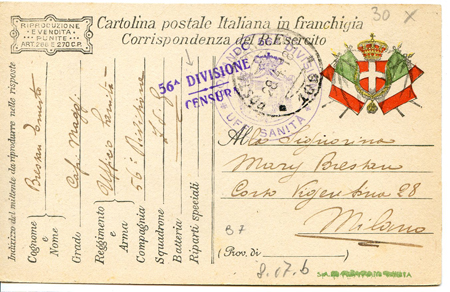 30 X
RIPRODUZIONE
E VENDITA
PUNITE
ART. 296 E 270 C.P.
Cartolina postale Italiana in franchigia
Corrispondenza del R. Esercito
56ª DIVISIONE
CENSURA
UFF. SANITÀ
Indirizzo del mittente da riprodurre nelle risposte
Cognome e Nome Brestan Ernesto
Grado Cap. Magg.
Reggimento e Arma Ufficio Sanità
Compagnia 56ª Divisione
Squadrone
Batteria
Riparti speciali
Alla Signorina
Mary Brestan
Corso Vigentina 28
Milano
(Prov. di )
B7
8.07.b